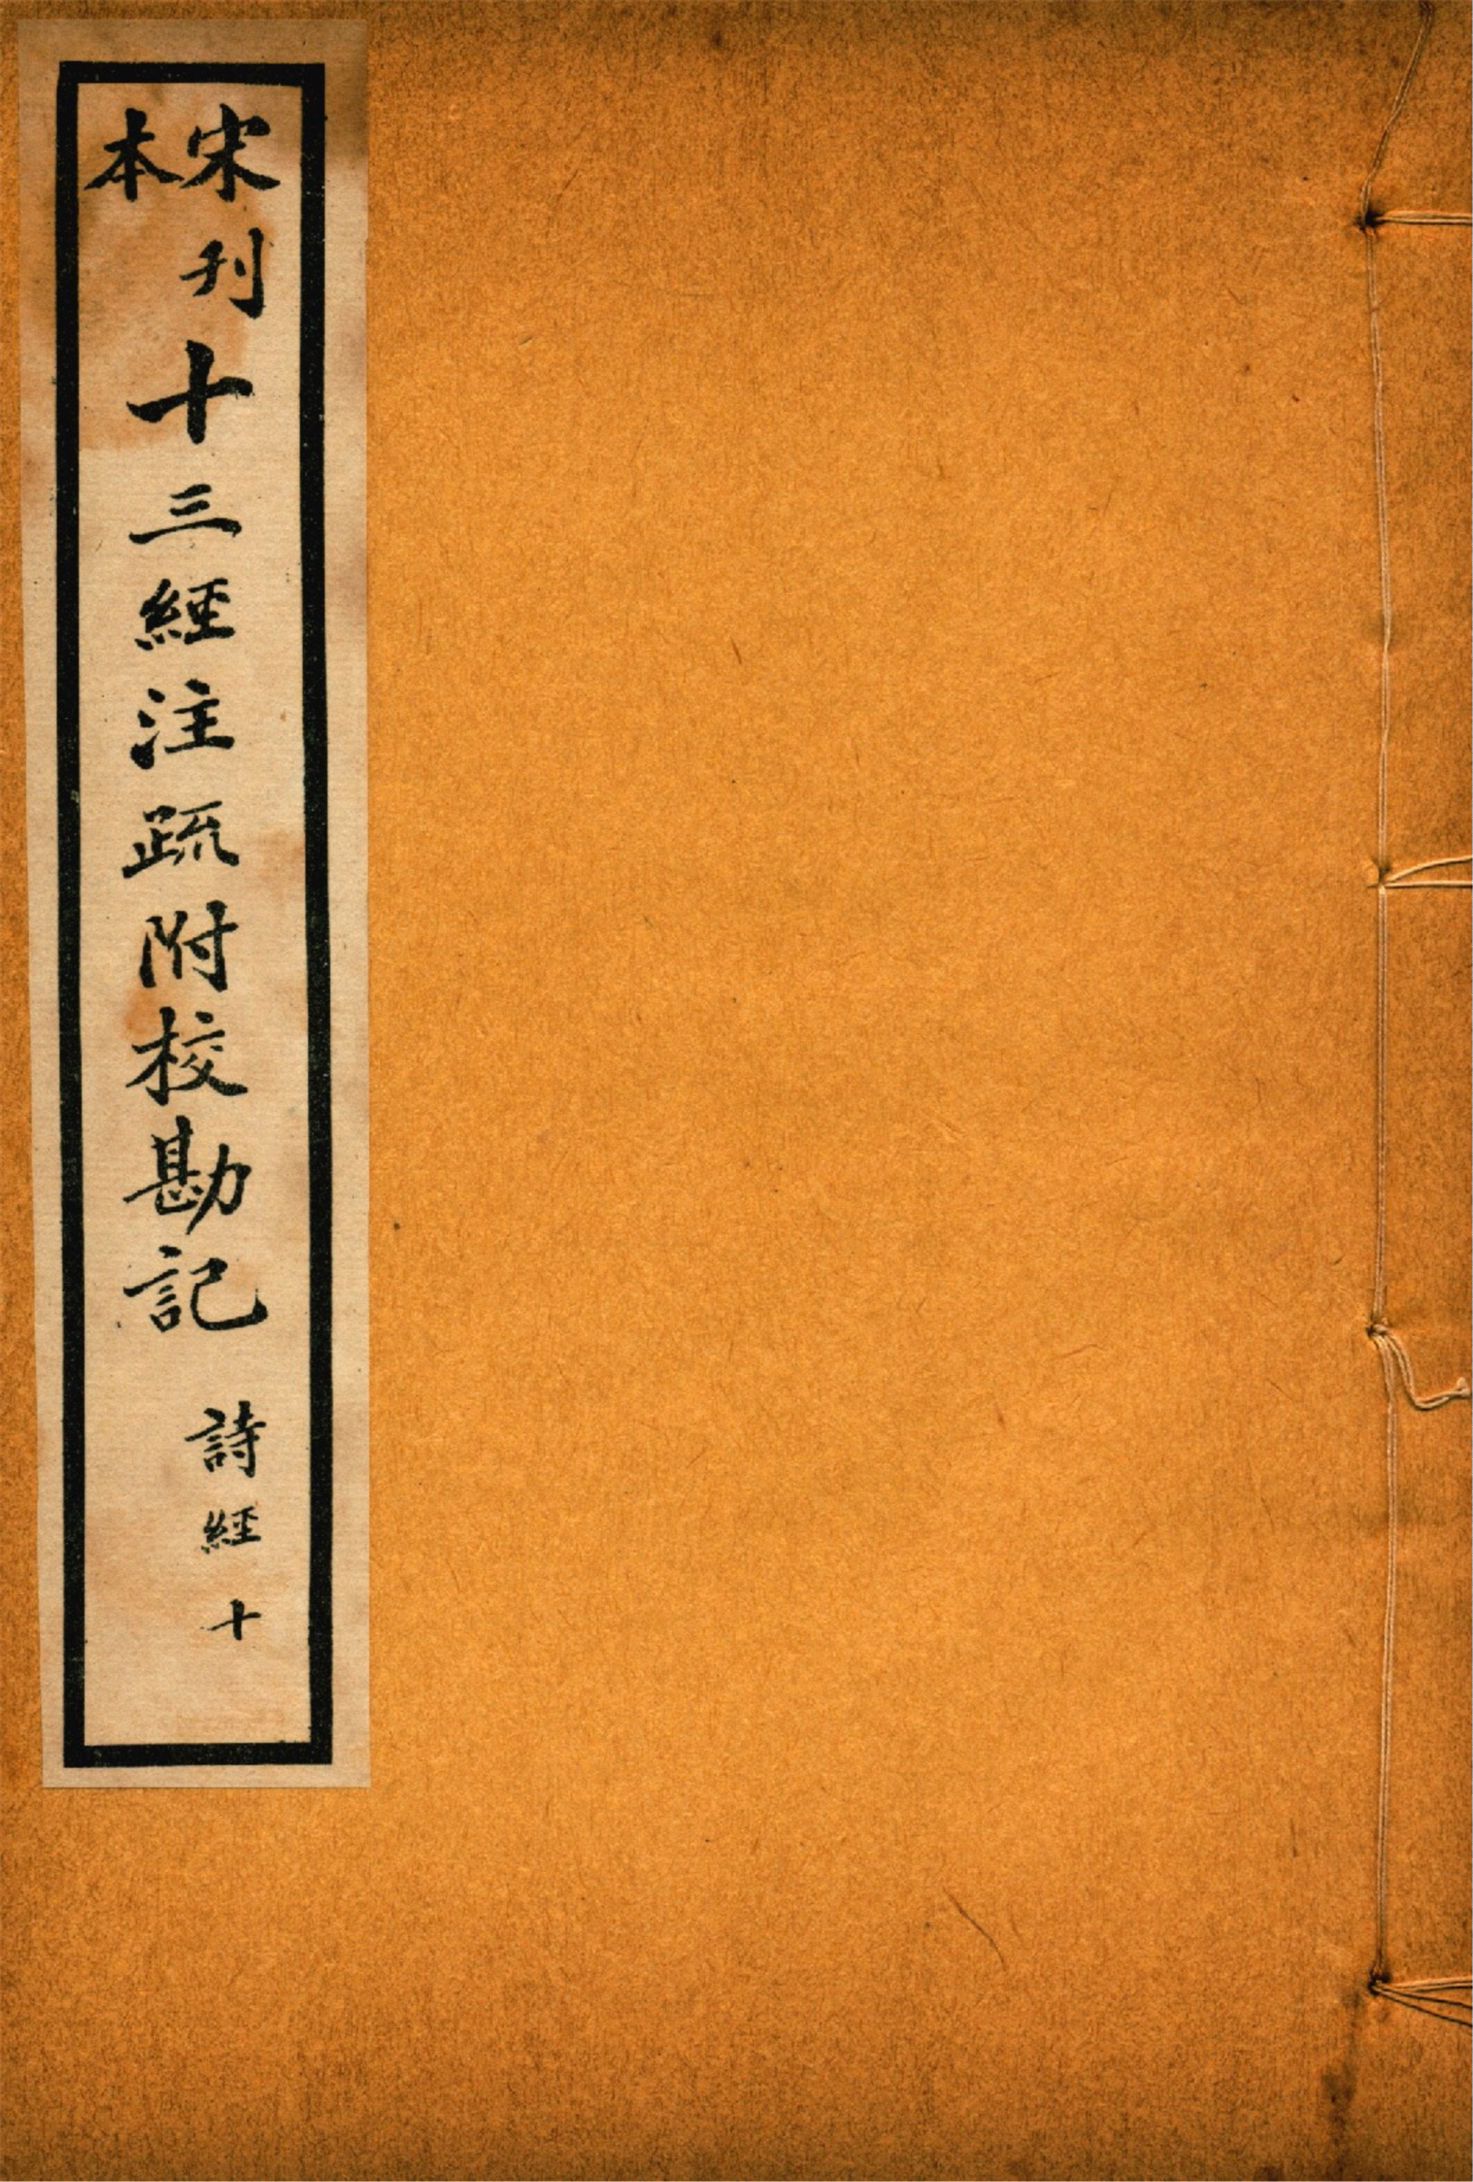 宋刊本十三經注疏附校勘記
詩經十